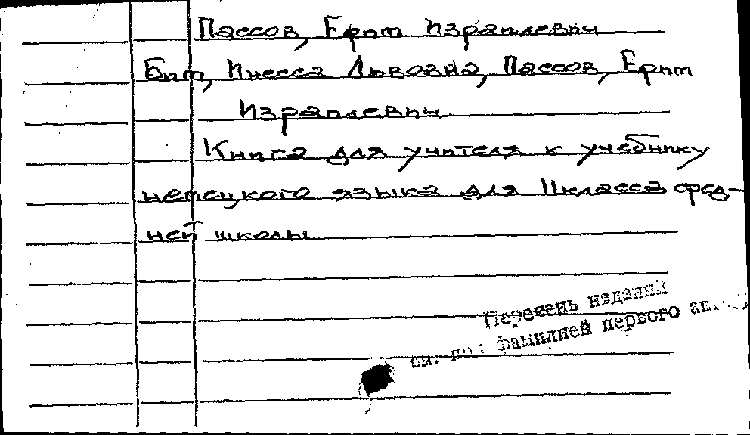 Пассов, Ефим Израилевич
Бим, Инесса Львовна, Пассов, Ефим
Израилевич.
Книга для учителя к учебнику
немецкого языка для 11 класса сред-
ней школы
Перечень изданий
см. под фамилией первого